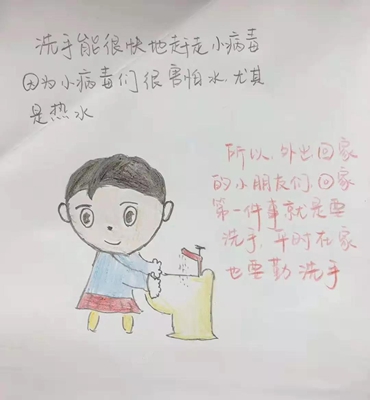 洗手能很快地赶走小病毒
因为小病毒们很害怕水.尤其
是热水
所以.外出回家
的小朋友们.回家
第一件事就是要
洗手.平时在家
也要勤洗手